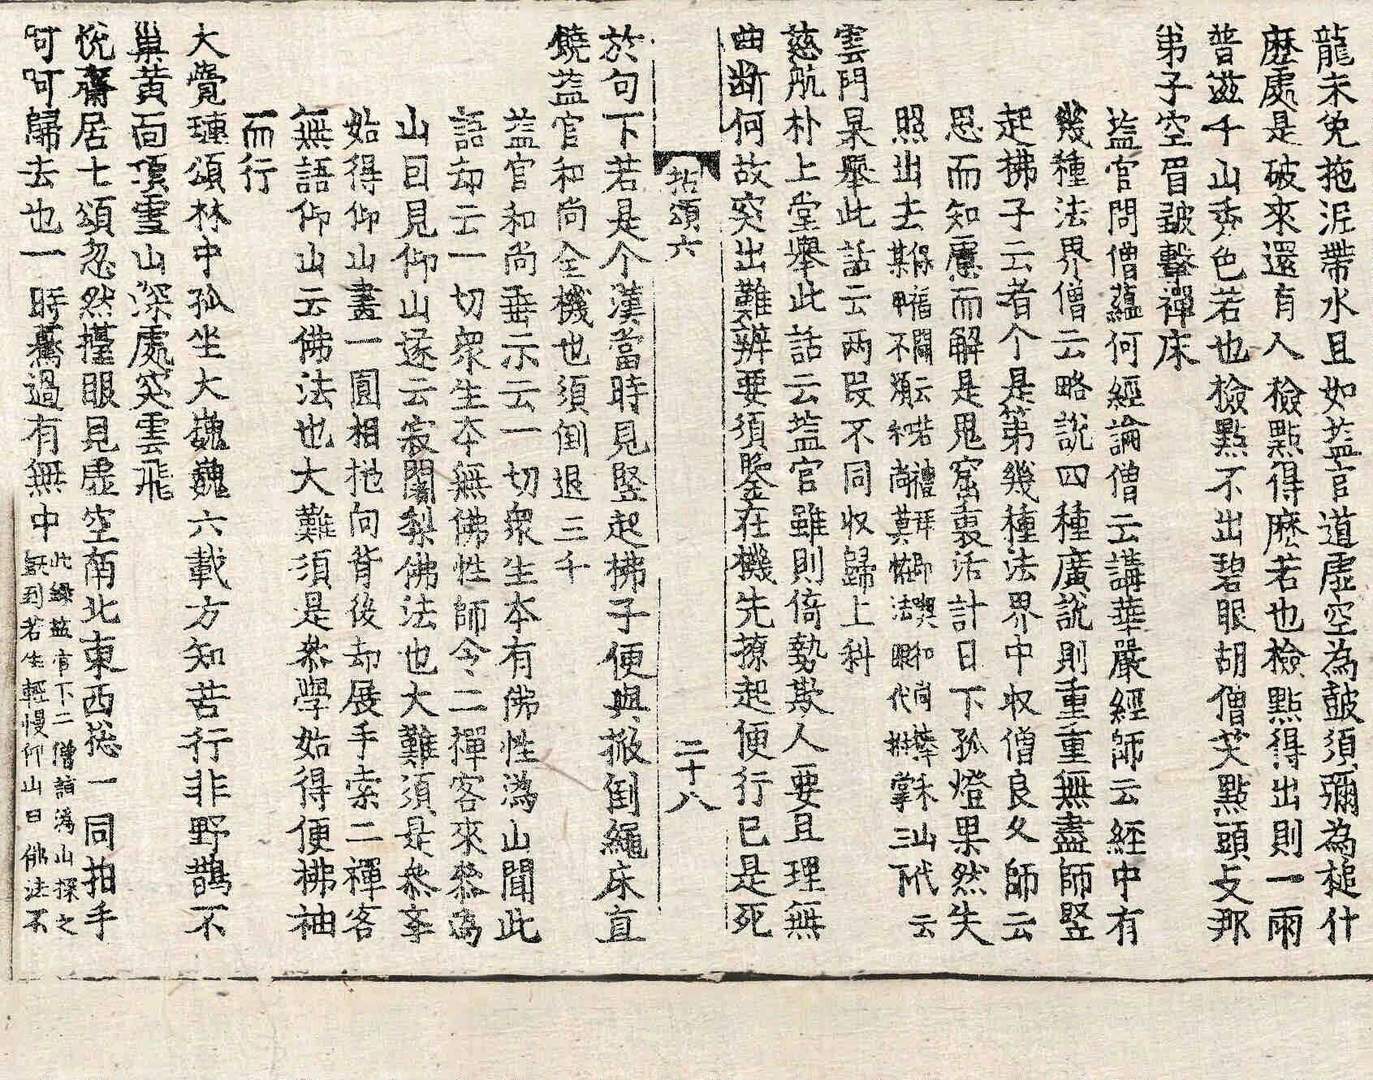 龍未免拖泥帶水且如盐官道虛空為皷須彌為槌什
麽處是破來還有人檢點得麽若也檢點得出則一雨
普滋千山秀色若也檢點不出碧眼胡僧笑點頭攴那
弟子空眉皷擊禪床
盐官問僧蘊何經論僧云講華嚴經師云經中有
幾種法界僧云略說四種廣說則重重無盡師竪
起拂子云者个是第幾種法界中収僧良久師云
思而知慮而解是鬼窟裏活計日下孤燈果然失
照出去保福聞云若禮拜即喫和尚棒禾山代云
某甲不煩和尚莫怪法眼代拊掌三下
雲門杲舉此話云兩段不同収歸上科
慈航朴上堂舉此話云盐官雖則倚勢欺人要且理無
曲断何故突出難辨要須噞在機先撩起便行已是死
拈頌六 二十八
於句下若是个漢當時見竪起拂子便與掀倒繩床直
饒盐官和尚全機也須倒退三千
盐官和尚垂示云一切衆生本有佛性溈山聞此
語却云一切衆生本無佛性師令二禪客來叅溈
山因見仰山遂云寂闍梨佛法也大難須是叅李
始得仰山畫一圓相抛向背後却展手索二禪客
無語仰山云佛法也大難須是叅學始得便拂袖
而行
大覺璉頌林中孤坐大巍巍六載方知苦行非野鵲不
巢黃面頂雪山深處笑雲飛
悅齋居士頌忽然擡眼見虛空南北東西揔一同拍手
呵呵歸去也一時驀過有無中此錄盐官下二僧詣溈山探之
旣到若生輕慢仰山曰佛法不